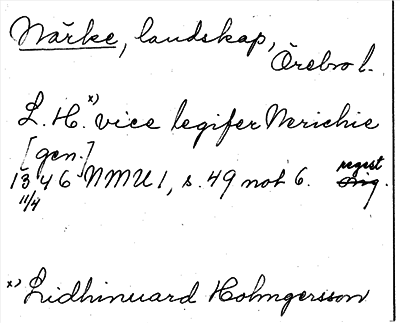 Närke, landskap,
Örebro l.
L. H. x) vice legifer Nerichie
[gen.]
1346 NMU 1, s. 49 not 6. regist
11/4
x) Lidhinuard Holmgersson